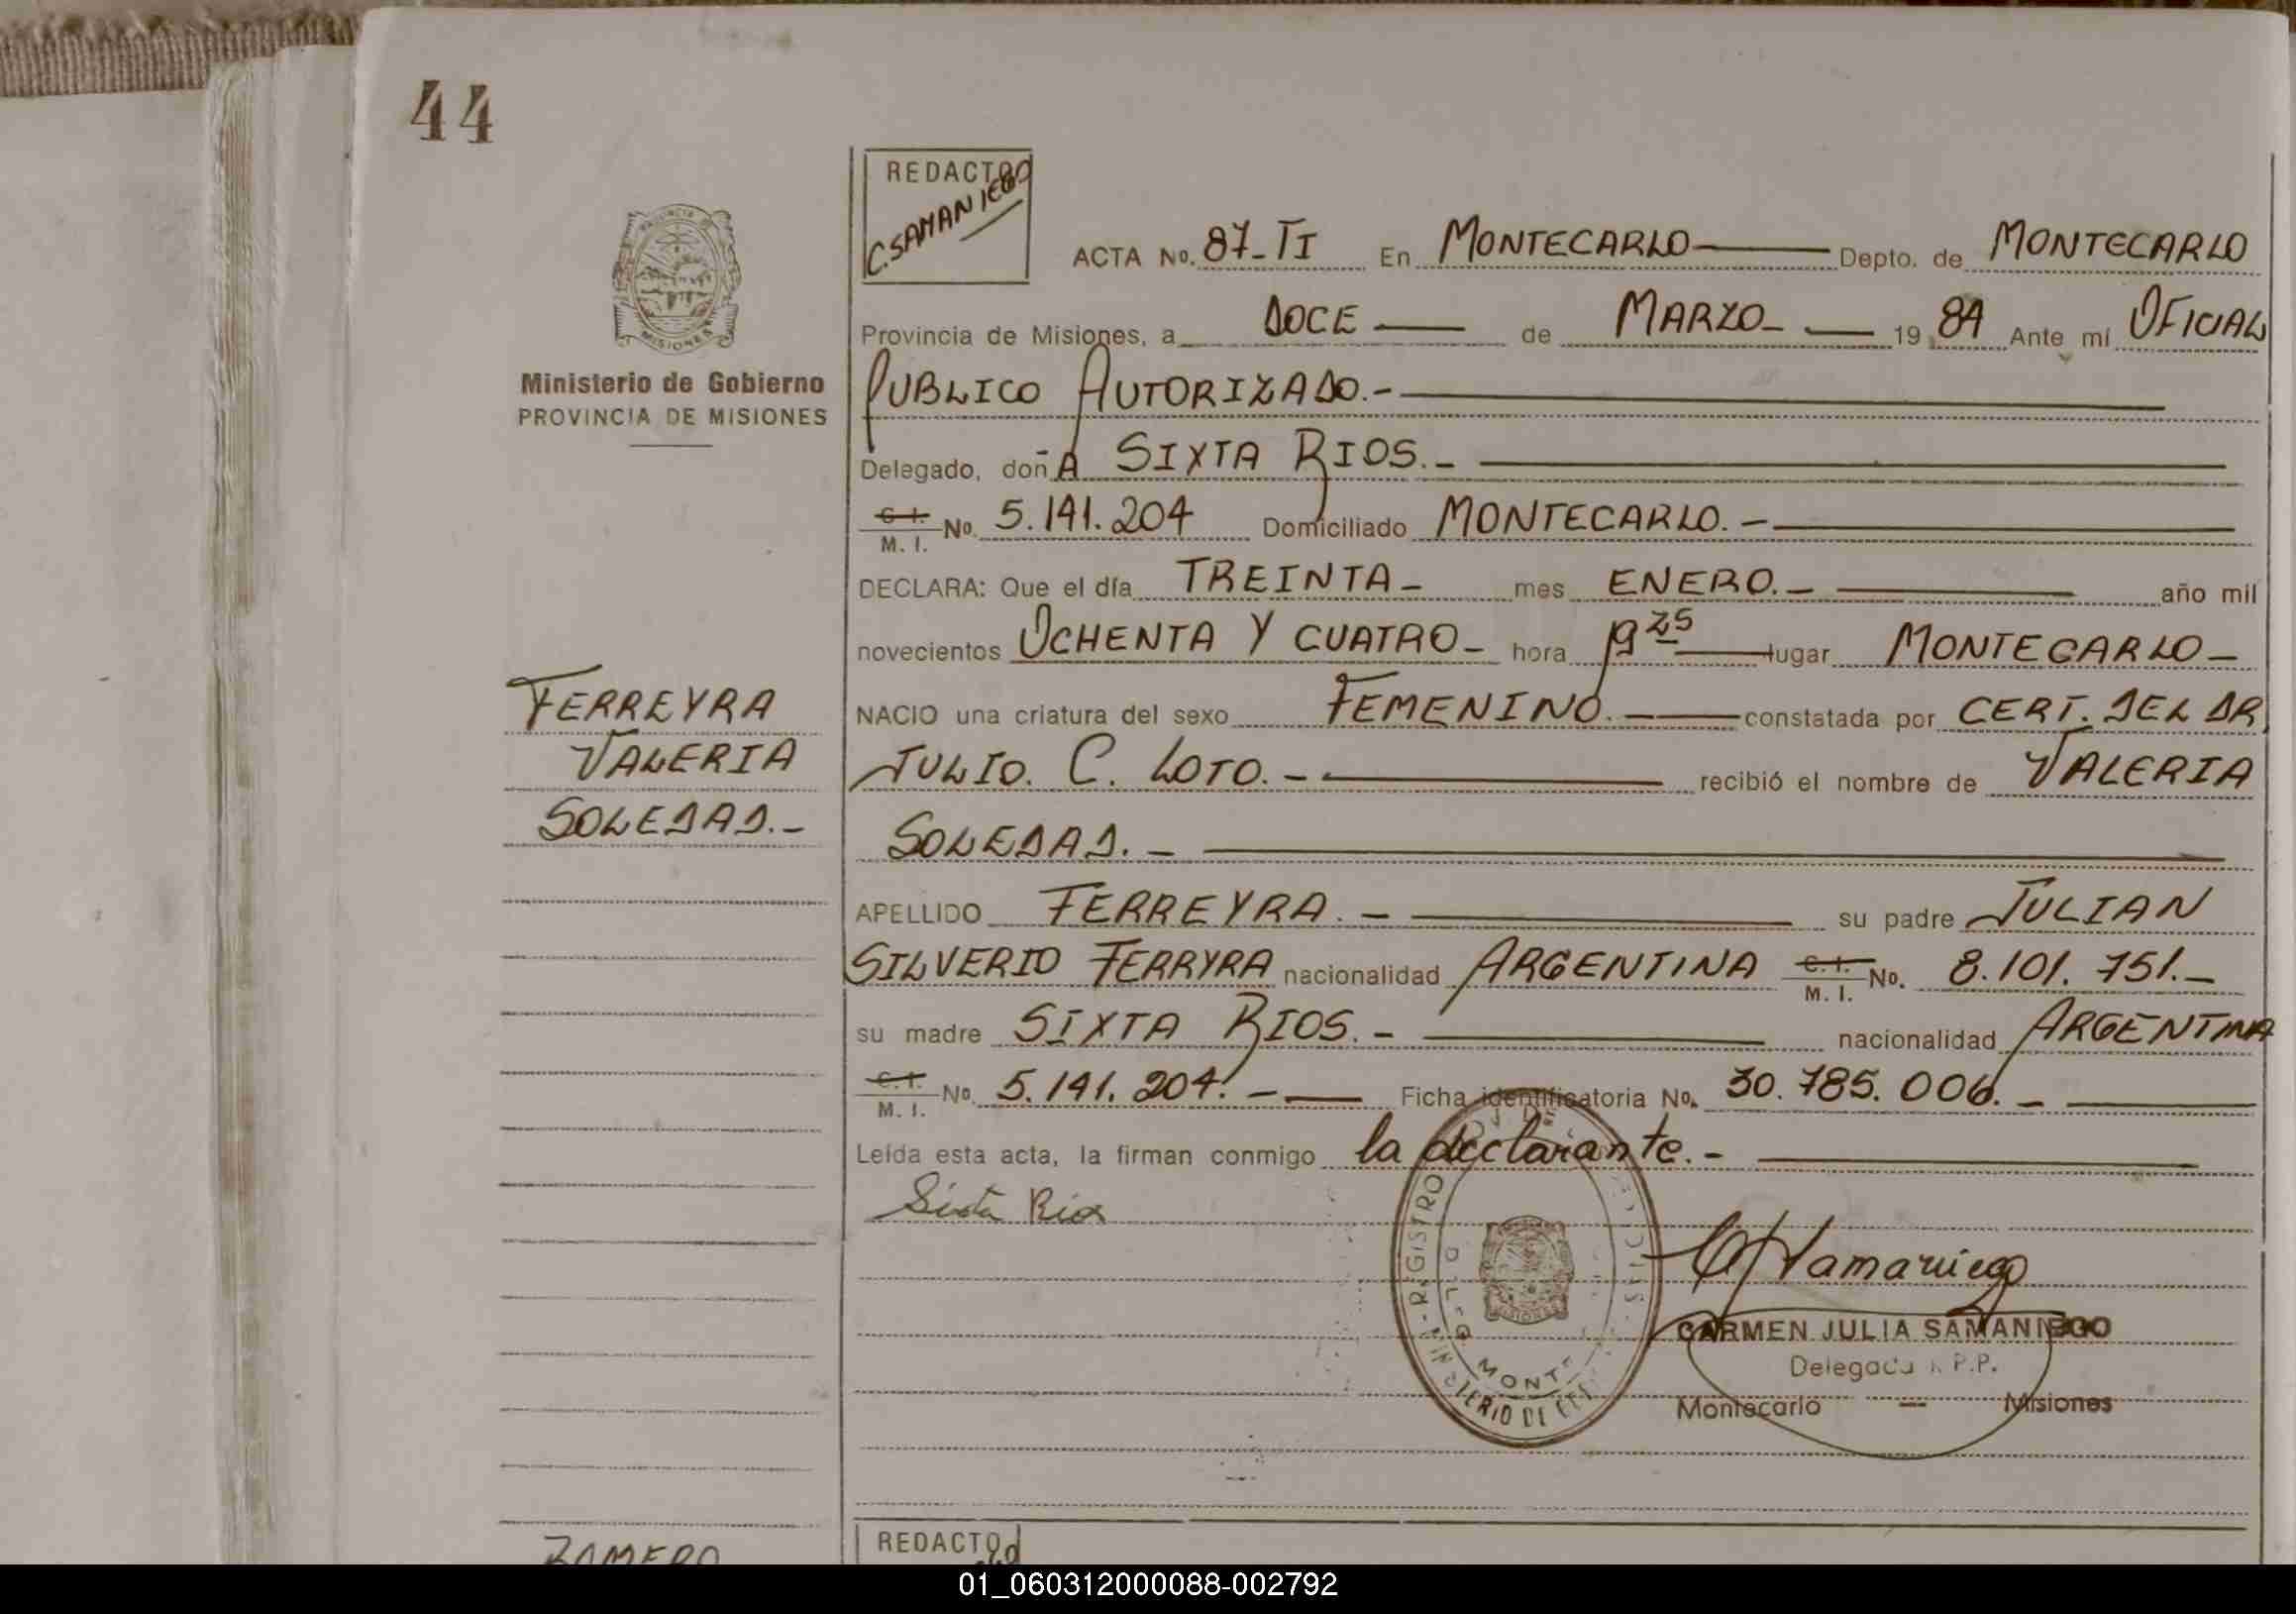 44
REDACTO
C.SAMANIEGO
ACTA No. 87-TI En MONTECARLO Depto. de MONTECARLO
Provincia de Misiones, a DOCE de MARZO- 19 84 Ante mí OFICIAL
PUBLICO AUTORIZADO.-
Delegado, doñA SIXTA RIOS.-
C.I. M. I. No. 5.141.204 Domiciliado MONTECARLO.-
DECLARA: Que el día TREINTA- mes ENERO.- año mil
novecientos OCHENTA Y CUATRO- hora 19 25 lugar MONTECARLO-
NACIO una criatura del sexo FEMENINO.- constatada por CERT. DEL DR
JULIO. C. LOTO.- recibió el nombre de VALERIA
SOLEDAD.-
APELLIDO FERREYRA.- su padre JULIAN
SILVERIO FERRYRA nacionalidad ARGENTINA C.I. M. I. No. 8.101.751.-
su madre SIXTA RIOS.- nacionalidad ARGENTINA
C.I. M. I. No. 5.141.204.- Ficha identificatoria No. 30.785.006.-
Leída esta acta, la firman conmigo la declarante.-
Sixta Rios
CSamaniego
CARMEN JULIA SAMANIEGO
Delegada R.P.P.
Montecarlo — Misiones
REGISTRO
MINISTERIO DE
MONTE
PROVINCIA DE
MISIONES
Ministerio de Gobierno
PROVINCIA DE MISIONES
FERREYRA
VALERIA
SOLEDAD.-
REDACTO
01_060312000088-002792